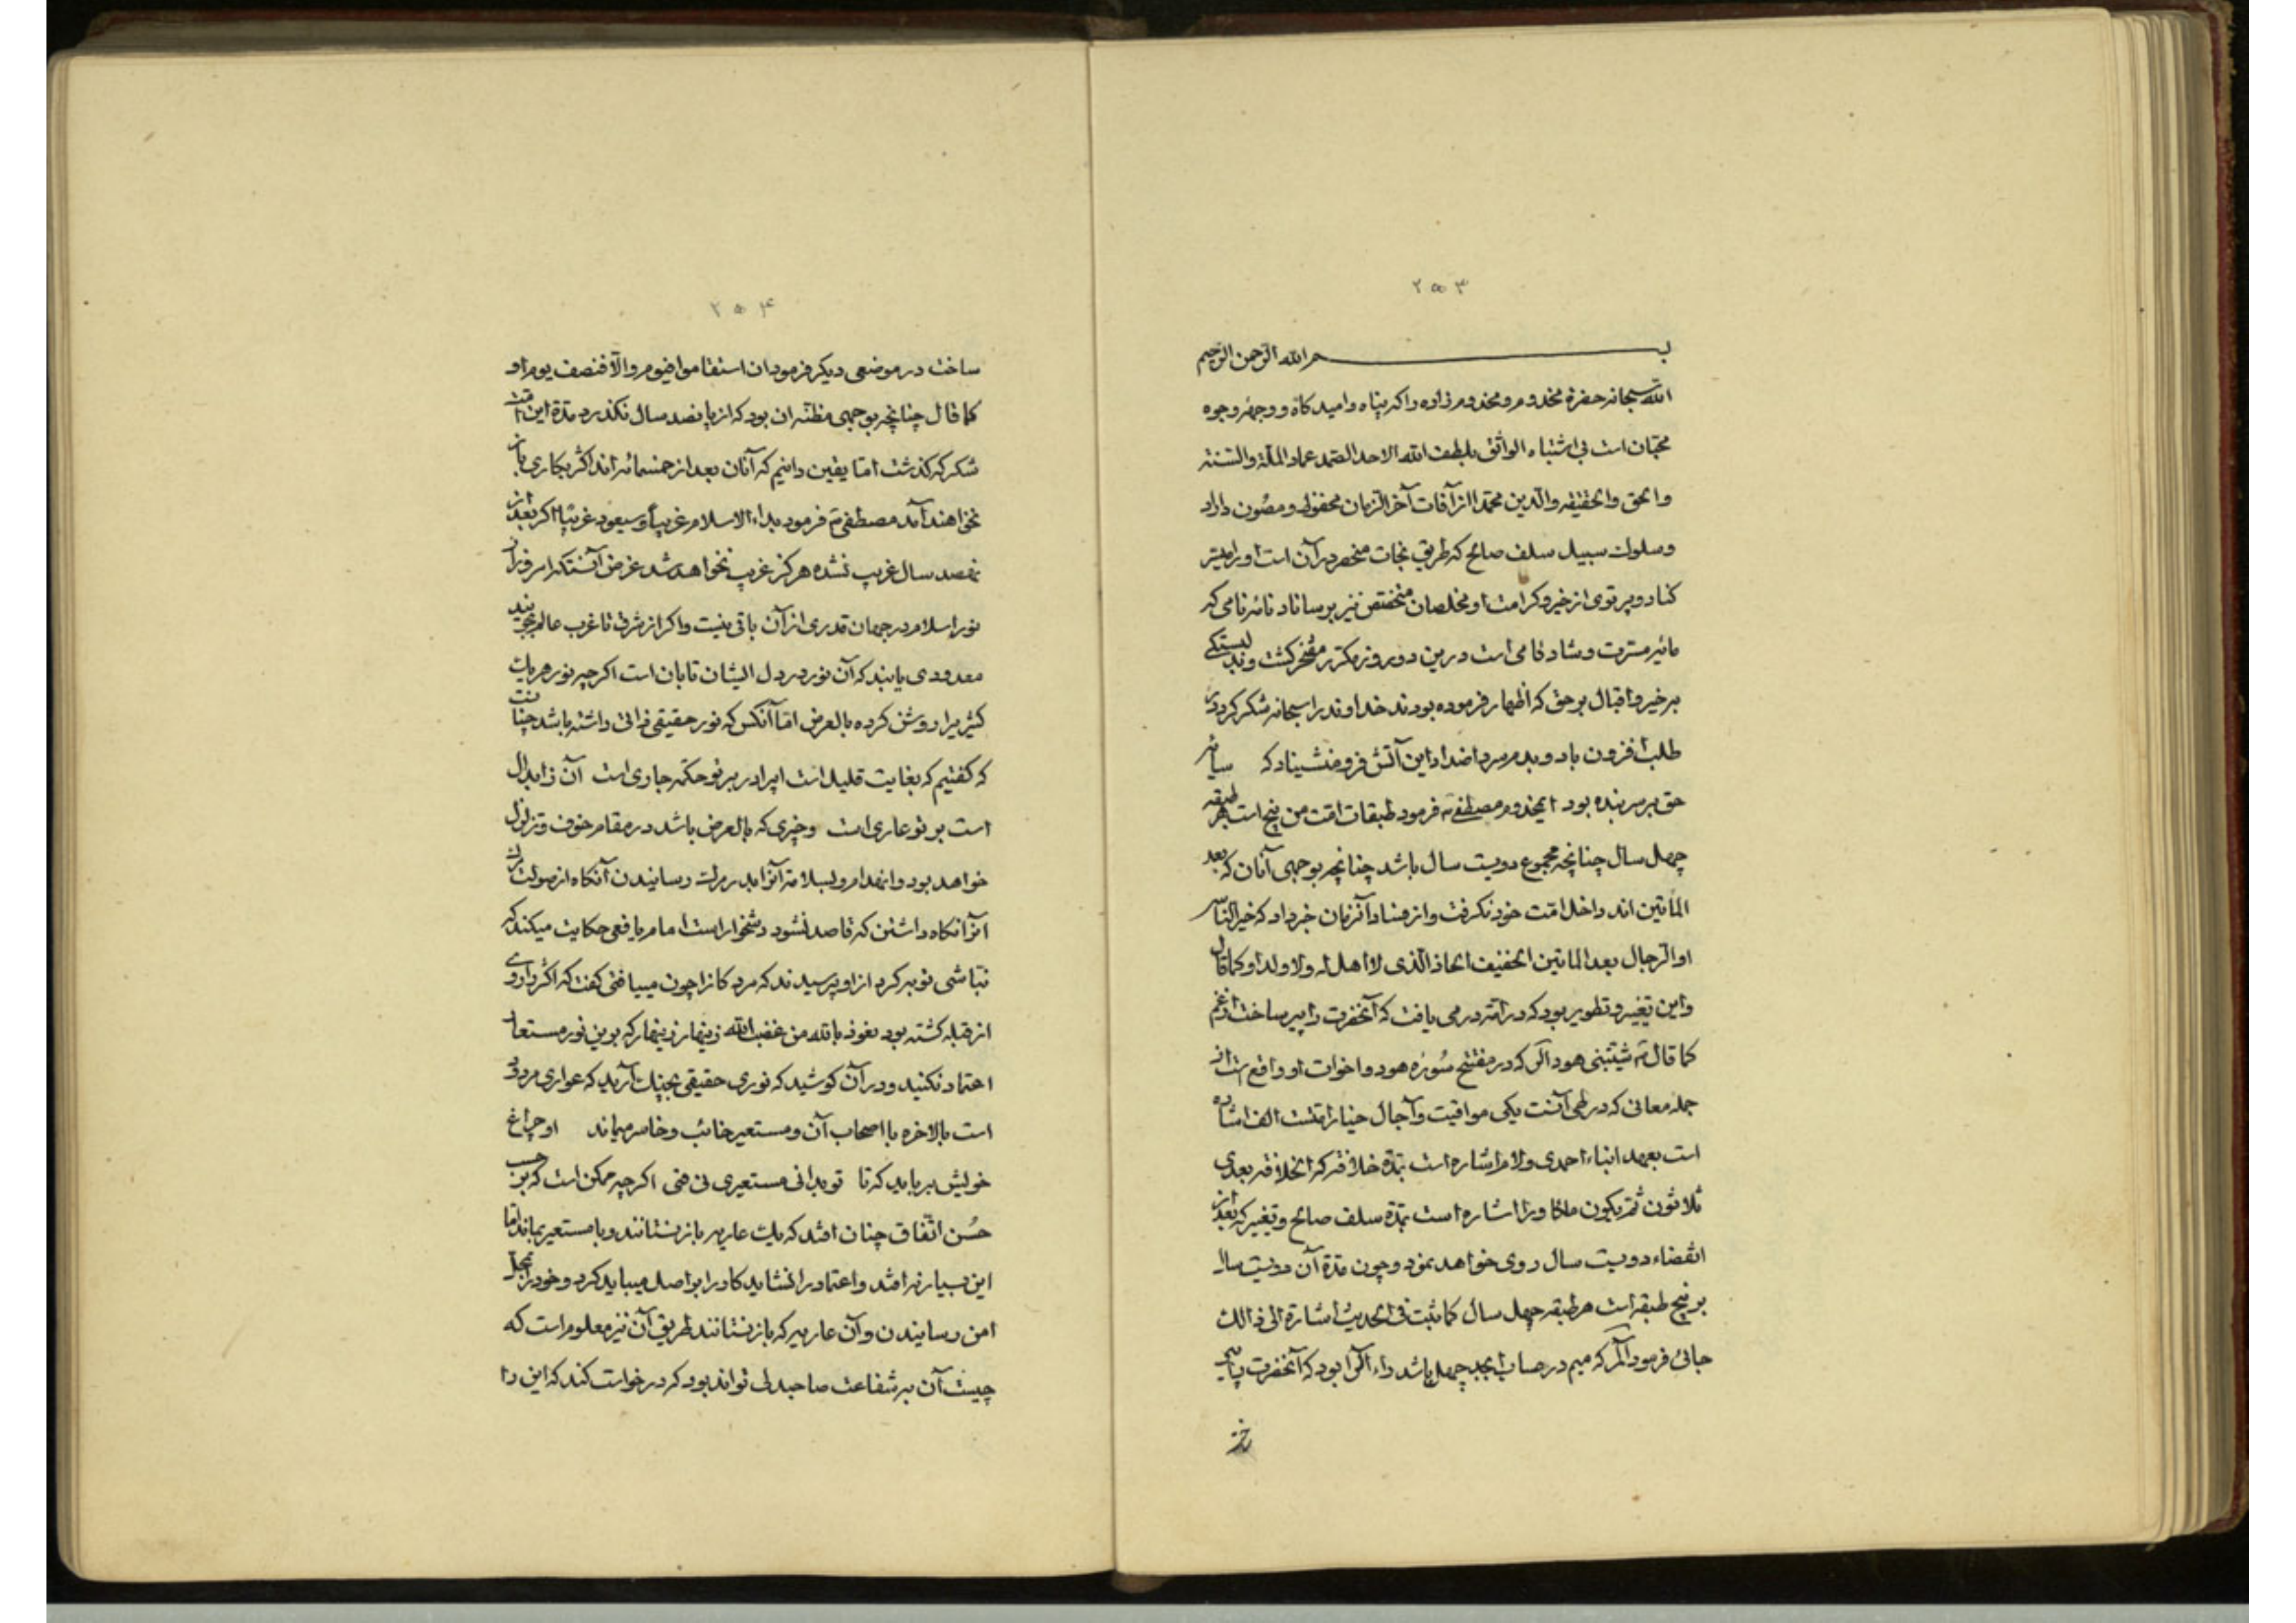 ۲۵۳
بسم الله الرحمن الرحیم
الله سبحانه حضرة مخدوم و مخدوم زاده را که پناه و امیدکاه و وجهۀ وجوه
محبان است بی اشتباه الواثق بلطف الله الاحد الصمد عماد الملة والسنة
والحق والحقیقه والدین محمد از آفات آخر الزمان محفوظ و مصون داراد
و سلوك سبیل سلف صالح که طریق نجات منحصر در آن است او را میسر
کناد و پرتوی از خیر و کرامت او مخلصان مختص نیز برساناد نامه نامی که
مایه مسرت و شادکامی است درین دو روز مکرر مفتخر کشت و بدلبستکی
بر خیر و اقبال بر حق که اظهار فرموده بودند خداوند را سبحانه شکر کرد درد
طلب افزون باد و بدمرسرد اضداد این آتش فرو منشیناد که سایه
حق بر سر بنده بود ایمخدوم مصطفی ص فرمود طبقات امت من پنج است هر طبقه
چهل سال چنانچه مجموع دویست سال باشد چنانچه بوجهی آنان که بعد
المأتین اند داخل امت خود نکرفت و از فساد آنزمان خبر داد که خیر الناس
او الرجال بعد المأتین الخفیف الحاذ الذی لا اهل له ولا ولد او کما قال
و این تغییر و تطویر بود که در امته در می یافت که آنحضرت را پیر ساخت از غم
کما قال ص شیبتنی هود الر که در مفتتح سوره هود و اخوات او واقع است از
جمله معانی که در طی آنست یکی مواقیت و آجال چنانراقتست الف اشاره
است بعهد انباء احمدی و لام اشاره است بمدة خلافته که الخلافة بعدی
ثلاثون ثم یکون ملکا و را اشاره است بمدة سلف صالح و تغییر که بعد از
انقضاء دویست سال روی خواهد نمود و چون مدة آن دویست سال
بر پنج طبقه است هر طبقه چهل سال کما ثبت فی الحدیث اشارة الی ذالك
جائی فرمود المر که میم در حساب ابجد چهل باشد داء اکرا بود که آنحضرت پیر
۲۵۴
ساخت در موضعی دیکر فرمود ان استقاموا فیوم والا فنصف یوم او
کما قال چنانچه بوجهی مظنه ان بود که از پانصد سال نکذرد مدة این امت
شکر که کذشت اما یقین دانیم که آنان بعد از خمسمائه اند اکثر بکاری باز
نخواهند آمد مصطفی ص فرمود بداء الاسلام غریباً و سیعود غریباً اکر بعد از
نهصد سال غریب نشده هرکز غریب نخواهد شد غرض آنستکه امروز از
نور اسلام در جهان قدری از آن باقی نیست و اکر از شرق تا غرب عالم بجویند
معدودی یابند که آن نور در دل ایشان تابان است اکرچه نور هر یك
کثیری را روشن کرده بالعرض اما آنکس که نور حقیقی ذاتی داشته باشد چنانست
که کفتیم که بغایت قلیل است ایرادر بر تو حکمه جاری است آن زاید ال
است بر تو عاری است و چیزی که بالعرض باشد در مقام خوف و تزلزل
خواهد بود و انهدام و لسلامة آنرا بدر مرك رسانیدن آنکاه از صولت مرك
آنرا نکاه داشتن که قاصد نشود دشخوار است امام یافعی حکایت میکند که
نباشی توبه کرد از او پرسیدند که مردکانرا چون مییافتی کفت که اکثر را روی
از قبله کشته بود نعوذ بالله من غضب الله زینهار زینهار که بوین نور مستعار
اعتماد نکنید و در آن کوشید که نوری حقیقی بچنك آرید که عواری مردود
است بالاخره با اصحاب آن و مستعیر خائب و خاسر میماند او چراغ
خویش بر باید که تا تو بدانی مستعیری نی فتی اکرچه ممکن است که بر حسب
حُسن اتّفاق چنان افتد که یك عاریه باز نستانند و با مستعیر بماند اما
این بسیار نه افتد و اعتماد را نشاید کار را بر اصل میباید کرد و خود را بمحل
امن رسانیدن و آن عاریه که باز نستانند طریق آن نیز معلوم است که
چیست آن بر شفاعت صاحبدلی تواند بود که درخواست کند که این را